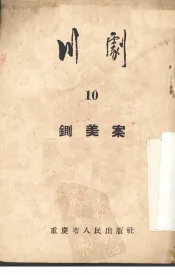 川劇
10
鍘美案
重慶市人民出版社